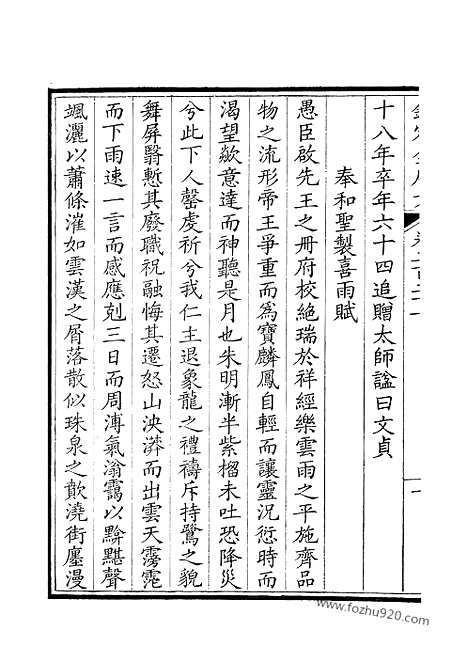 十八年卒年六十四追贈太師諡曰文貞
奉和聖製喜雨賦
愚臣啟先王之冊府校絶瑞於祥經樂雲雨之平施齊品
物之流形帝王爭重而為寶麟鳳自輕而讓靈況愆時而
渴望歘意達而神聽是月也朱明漸半紫榴未吐恐降災
兮此下人罄虔祈兮我仁主退象龍之禮禱斥持鷺之貌
舞屏翳慙其廢職祝融悔其遷怒山泱漭而出雲天霶霔
而下雨速一言而感應剋三日而周溥氣滃靄以黭黮聲
颯灑以蕭條漼如雲漢之屑落散似珠泉之歕澆街鏖漫
www.fozhu920.com